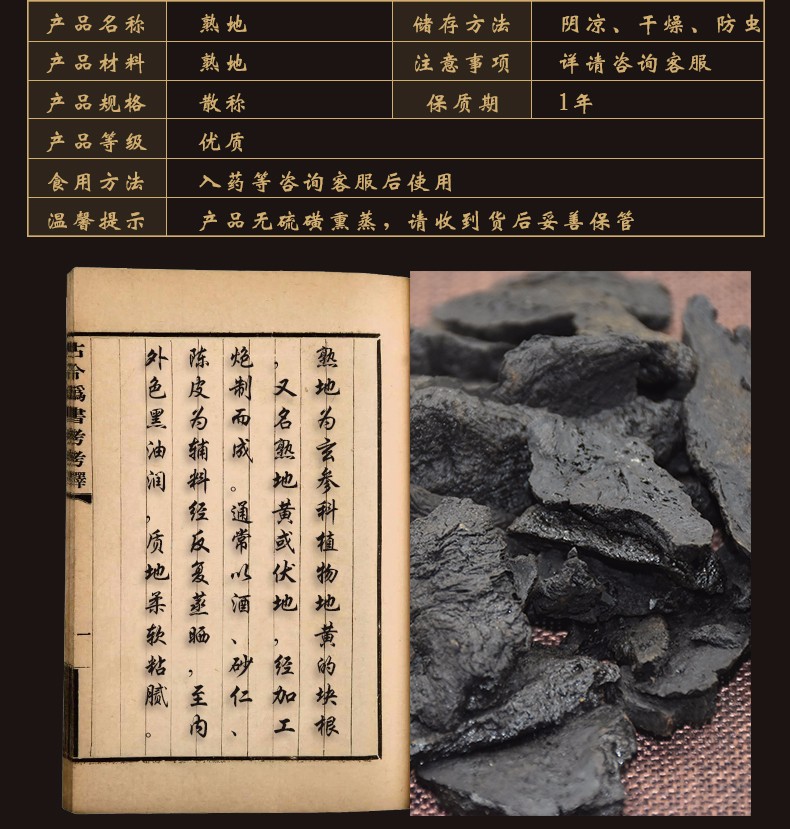 产品名称 熟地 储存方法 阴凉、干燥、防虫
产品材料 熟地 注意事项 详请咨询客服
产品规格 散称 保质期 1年
产品等级 优质
食用方法 入药等咨询客服后使用
温馨提示 产品无硫磺熏蒸，请收到货后妥善保管
熟地为玄参科植物地黄的块根
，又名熟地黄或伏地，经加工
炮制而成。通常以酒、砂仁、
陈皮为辅料经反复蒸晒，至内
外色黑油润，质地柔软粘腻。
古今僞書考考釋
一